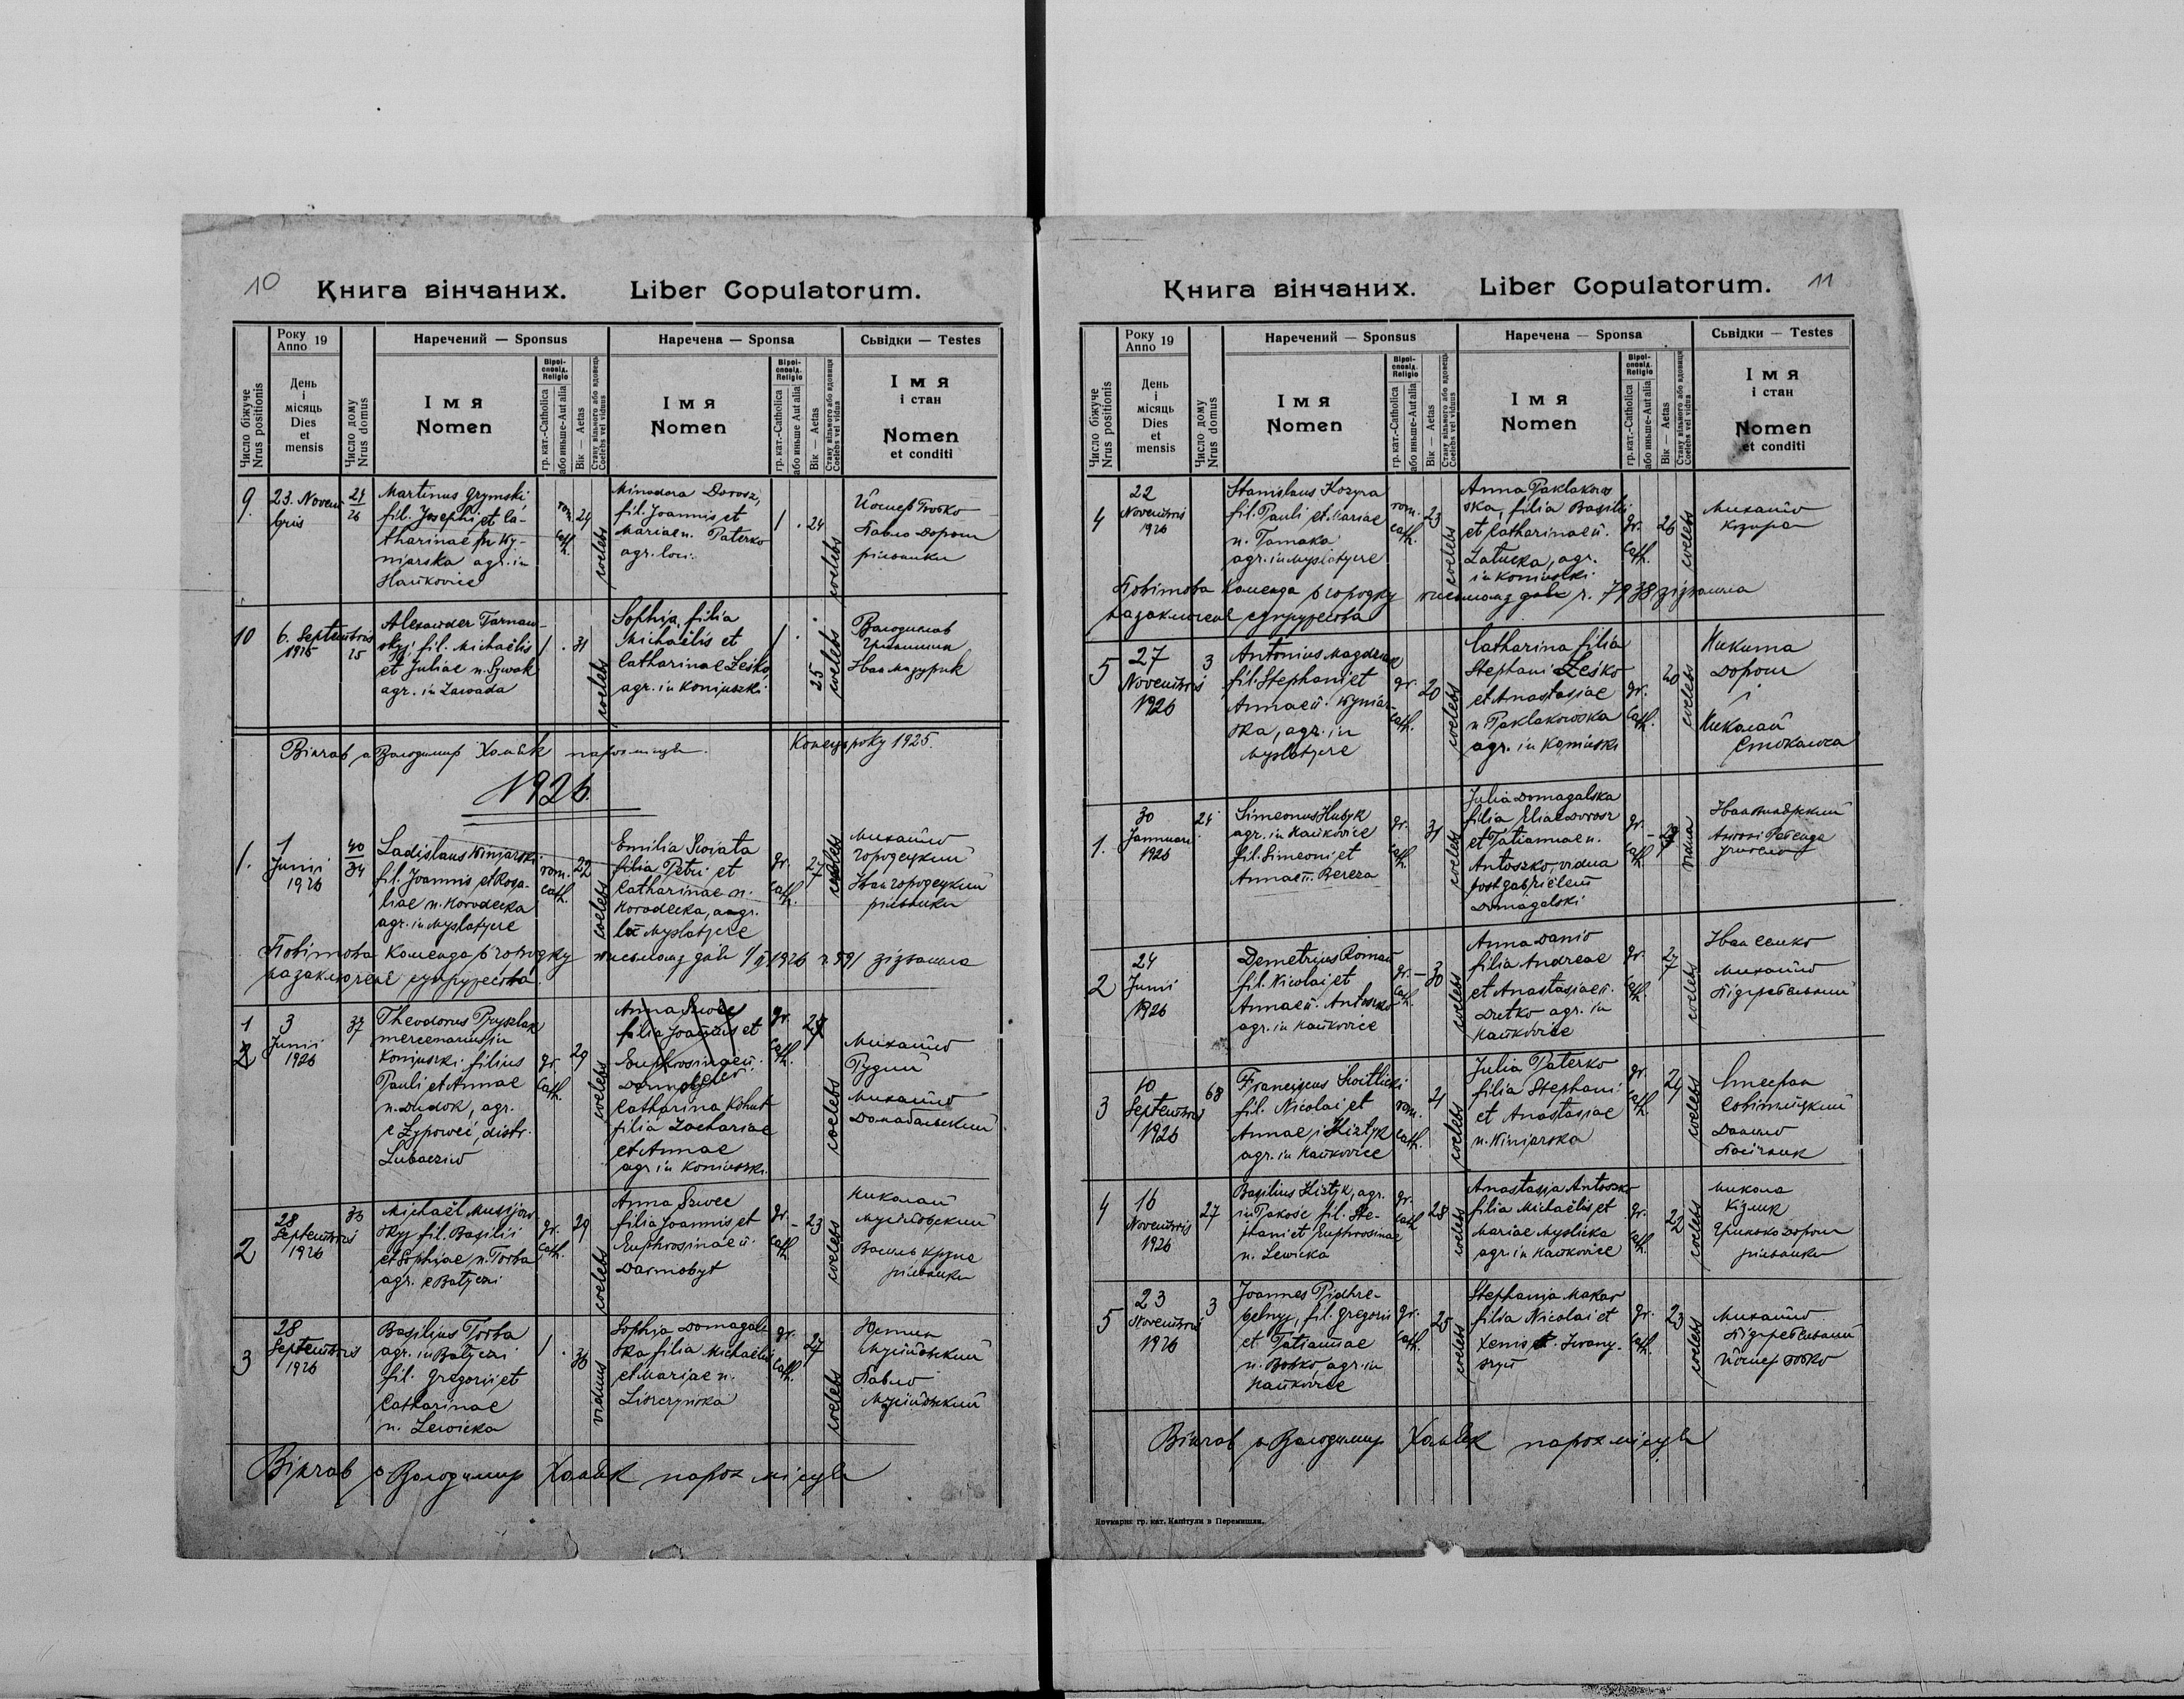 10
Книга вінчаних. Liber Copulatorum.
Число біжуче Nrus positionis
Року Anno 19
День і місяць Dies et mensis
Число дому Nrus domus
Наречений — Sponsus
Імя Nomen
Віроісповід. Religio
гр. кат.-Catholica
або иньше-Aut alia
Вік — Aetas
Стану вільного або вдовець Coelebs vel viduus
Наречена — Sponsa
Імя Nomen
Віроісповід. Religio
гр. кат.-Catholica
або иньше Aut alia
Вік — Aetas
Стану вільного або вдовиця Coelebs vel vidua
Сьвідки — Testes
Імя і стан
Nomen et conditi
9.
23. Novem
bris
24
26
Martinus Grymski,
fil. Josephi et Ca-
tharinae n. Wy-
niarska agr. in
Hańkovice
rom.
Cath.
24
coelebs
Minodora Dorosz,
fil. Joannis et
Mariae n. Paterko
agr. loci.
1
24
coelebs
Йосиф Бобко
Павло Дорош
рільники
10
6. Septembris
1925
25
Alexander Tarnaw-
skyj fil. Michaëlis
et Juliae n. Szwak
agr. in Zawada
1
31
coelebs
Sophia, filia
Michaëlis et
Catharinae Leśko,
agr. in Koniuszki
1
25
coelebs
Володислав
Іван Мазурик
Вінчав о Володимир Хомик парох місцев.
Конець року 1925.
1926.
1.
1
Junii
1926
40
34
Ladislaus Winiarski
fil. Joannis et Rosa-
liae n. Horodecka
agr. in Myslatycze
rom.
Cath.
22
coelebs
Emilia Swiata
filia Petri et
Catharinae n.
Horodecka, agr.
in Myslatycze
gr.
Cath.
27
coelebs
Михайло
Городецкий
Іван Городецкий
рільники
Повітова Команда в Городку письмом з дня 1/II 1926 ч. 591 зізволила
на заключенє супружества.
1
2
3
Junii
1926
37
Theodorus Pryszlak
mercenarius in
Koniuszki filius
Pauli et Annae
n. Dudok, agr.
e Łypowec, distr.
Lubaczów
gr.
Cath.
29
coelebs
Anna Szwec
filia Joannis et
Euphrosinae n.
Catharina Kohut
filia Zachariae
et Annae
agr in Koniuszki.
gr.
Cath.
coelebs
Михайло
Рудий
Михайло
2
28
Septembris
1926
33
Michaël Musijow-
skyj fil. Basilii
et Sophiae n. Torba
agr. e Batyczi
gr.
Cath.
29
coelebs
Anna Szwec
filia Joannis et
Euphrosinae n.
Darmobyt
gr.
Cath.
23
coelebs
Николай
Мусійовский
Василь Крупа
рільники
3
28
Septembris
1926
Basilius Torba
agr. in Batyczi
fil. Gregorii et
Catharinae
n. Lewicka
1
36
viduus
Sophia Domagal-
ska filia Michaëlis
et Mariae n.
Liszczyńska
gr.
Cath.
27
coelebs
Юстин
Мусійовский
Павло
Мусійовский
Вінчав о Володимир Хомик парох місцев
11
Книга вінчаних. Liber Copulatorum.
Число біжуче Nrus positionis
Року Anno 19
День і місяць Dies et mensis
Число дому Nrus domus
Наречений — Sponsus
Імя Nomen
Віроісповід. Religio
гр. кат.-Catholica
або иньше-Aut alia
Вік — Aetas
Стану вільного або вдовець Coelebs vel viduus
Наречена — Sponsa
Імя Nomen
Віроісповід. Religio
гр. кат.-Catholica
або иньше-Aut alia
Вік — Aetas
Стану вільного або вдовиця Coelebs vel vidua
Сьвідки — Testes
Імя і стан
Nomen et conditi
4
22
Novembris
1926
Stanislaus Kozyra
fil. Pauli et Mariae
n. Tamaka
agr. in Myslatycze
rom.
Cath.
23
coelebs
Anna Paklakow-
ska, filia Basilii
et Catharinae n.
Zatucka, agr.
in Koniuszki
gr.
Cath.
26
coelebs
Михайло
Козира
Повітова Команда в Городку письмом з дня ч. 7938 зізволила
на заключенє супружества
5
27
Novembris
1926
3
Antonius Magdziak
fil. Stephani et
Annae n. Wyniar-
ska, agr. in
Myslatycze
gr.
Cath.
20
coelebs
Catharina filia
Stephani Leśko
et Anastasiae
n. Paklakowska
agr. in Koniuszki
gr.
Cath.
20
coelebs
Никита
Дорош
і
Николай
Стокалоса
1.
30
Januarii
1926
24
Simeonus Hubyk
agr. in Hańkovice
fil. Simeoni et
Annae n. Bereza
gr.
Cath.
31
coelebs
Julia Domagalska
filia Eliae Dorosz
et Tatiannae n.
Antoszko, vidua
post Gabrielem
Domagalski
gr.
Cath.
vidua
2
24
Junii
1926
Demetrius Roman
fil. Nicolai et
Annae n. Antoszko
agr. in Hańkovice
gr.
Cath.
30
coelebs
Anna Danio
filia Andreae
et Anastasiae n.
Dutko agr. in
Hańkovice
gr.
Cath.
27
coelebs
Іван Сенко
Михайло
Підгребельний
3
10
Septembris
1926
68
Franciscus Switlicki
fil. Nicolai et
Annae Hiztyk
agr. in Hańkovice
rom.
Cath.
21
coelebs
Julia Paterko
filia Stephani
et Anastasiae
n. Winiarska
gr.
Cath.
24
coelebs
Стефан
Світлицкий
Данило
Пасічник
4
16
Novembris
1926
27
Basilius Hiztyk, agr.
in Pakość fil. Ste-
phani et Euphrosinae
n. Lewicka
gr.
Cath
28
coelebs
Anastasia Antoszko
filia Michaëlis et
Mariae Myslicka
agr. in Hańkovice
gr.
Cath.
22
coelebs
Микола
Гринько Дорош
рільники
5
23
Novembris
1926
3
Joannes Pidhre-
belnyj, fil. Gregorii
et Tatiannae
n. Bobko, agr. in
Hańkovice
gr.
Cath.
25
coelebs
Stephania Makar
filia Nicolai et
Xeniae Iwany-
szyn
gr.
Cath.
23
coelebs
Михайло
Підгребельний
Йосиф Бобко
Вінчав о Володимир Хомик парох місцев
Друкарня гр. кат. Капітули в Перемишли.